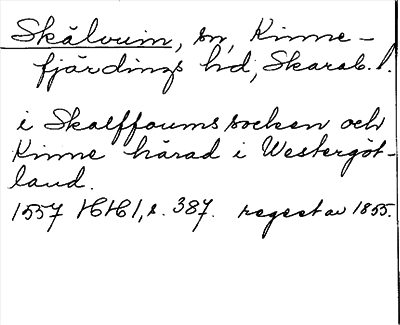 Skälvum, sn, Kinne-
fjärdings hd, Skarab. l.
i Skalffoums socken och
Kinne härad i Westergöt-
land.
1557 HH1, s. 387. regest av 1855.